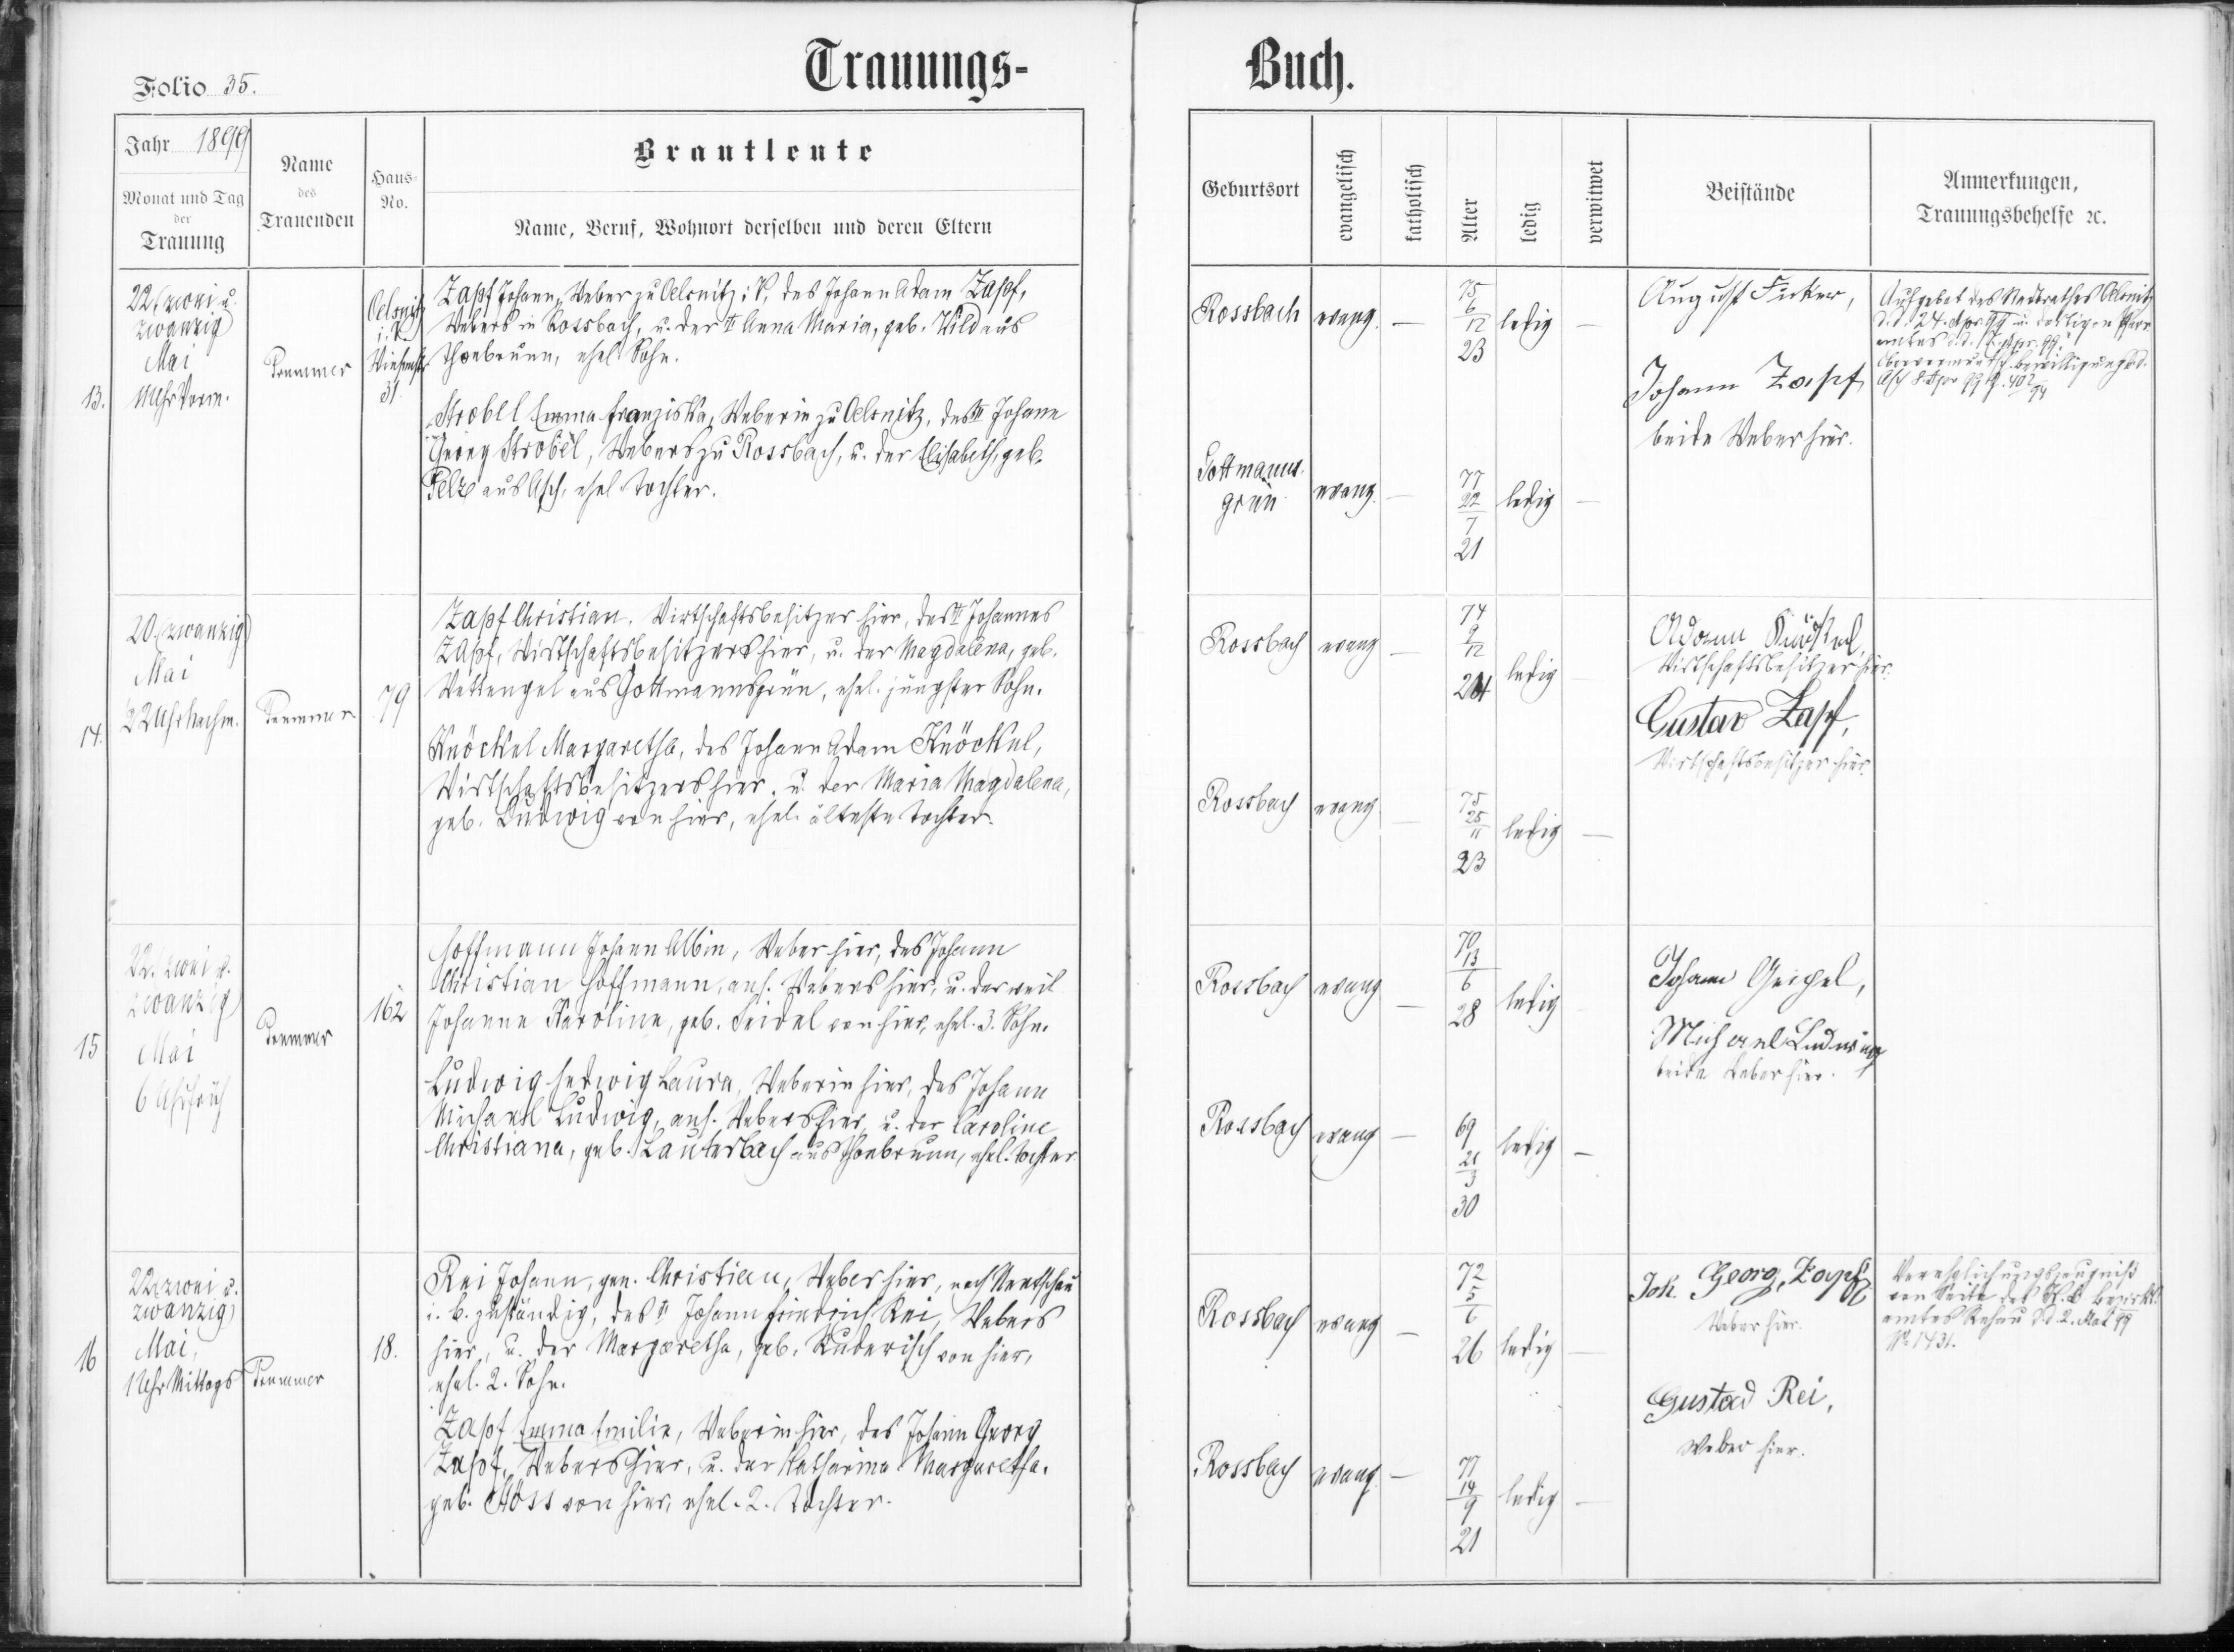 Folio 35.
Trauungs-
Buch.
Jahr 1899
Monat und Tag
der
Trauung
Name
des
Trauenden
Haus-
No.
Brautleute
Name, Beruf, Wohnort derselben und deren Eltern
Geburtsort
evangelisch
katholisch
Alter
ledig
verwitwet
Beistände
Anmerkungen,
Trauungsbehelfe ꝛc.
13.
22 (zwei u.
zwanzig)
Mai
Uhr Vorm.
Oelsnitz
i. V.
31
Zapf Johann, Weber zu Oelsnitz i. V., des Johann Adam Zapf,
Webers in Rossbach, u. der † Anna Maria, geb. Wild aus
Thonbrunn, ehel. Sohn.
Strobel Emma Franziska, Weberin zu Oelsnitz, des † Johann
Georg Strobel, Webers zu Rossbach, u. der Elisabeth, geb.
Pelz aus Asch, ehel. Tochter.
Rossbach evang. — 75 6/12 23 ledig —
Gottmanns-
grün evang. — 77 22/7 21 ledig —
August Ficker,
Johann Zapf
beide Weber hier.
Aufgebot des Stadtrathes Oelsnitz
d.d. 24. Apr. 99 u. dortigen Pfarr-
amtes
Asch 8 Apr 99
14.
20 (zwanzig)
Mai
2 Uhr Nachm.
79
Zapf Christian, Wirtschaftsbesitzer hier, des † Johannes
Zapf, Wirtschaftsbesitzers hier, u. der Magdalena, geb.
Wettengel aus Gottmannsgrün, ehel. jüngster Sohn.
Knöckel Margaretha, des Johann Adam Knöckel,
Wirtschaftsbesitzers hier, u. der Maria Magdalena,
geb. Ludwig von hier, ehel. älteste Tochter.
Rossbach evang — 74 9/12 24 ledig —
Rossbach evang. — 75 25/11 23 ledig —
Adam Knöckel,
Wirtschaftsbesitzer hier.
Gustav Zapf,
Wirtschaftsbesitzer hier.
15
22. (zwei u.
zwanzig)
Mai
6 Uhr früh
162
Hoffmann Johann Albin, Weber hier, des Johann
Christian Hoffmann, ans. Webers hier, u. der weil.
Johanne Karoline, geb. Seidel von hier, ehel. 3. Sohn.
Ludwig Hedwig Laura, Weberin hier, des Johann
Michael Ludwig, ans. Webers hier, u. der Caroline
Christiana, geb. Lauterbach aus Thonbrunn, ehel. Tochter
Rossbach evang — 70 13/6 28 ledig —
Rossbach evang — 69 21/3 30 ledig —
Johann Geipel,
Michael Ludwig
beide Weber hier.
16
22 (zwei u.
zwanzig)
Mai,
1 Uhr Mittags
18.
Rei Johann, gen. Christian, Weber hier, nach Nentschau
i. B. zuständig, des † Johann Friedrich Rei, Webers
hier, u. der Margaretha, geb. Ruderisch von hier,
ehel. 2. Sohn.
Zapf Emma Emilie, Weberin hier, des Johann Georg
Zapf, Webers hier, u. der Katharina Margaretha,
geb. Höss von hier, ehel. 2. Tochter.
Rossbach evang — 72 5/6 26 ledig —
Rossbach evang. — 77 19/9 21 ledig —
Joh. Georg, Zapf
Weber hier.
Gustav Rei,
Weber hier.
Verehelichungszeugniß
von Seite des K. B. Bezirks-
amtes Rehau d.d. 2. Mai 99
No 1431.